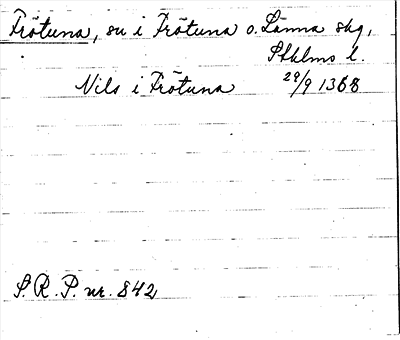 Frötuna, sn i Frötuna o. Länna skg,
Sthlms l.
Nils i Frötuna 29/9 1368
S.R.P. nr. 842